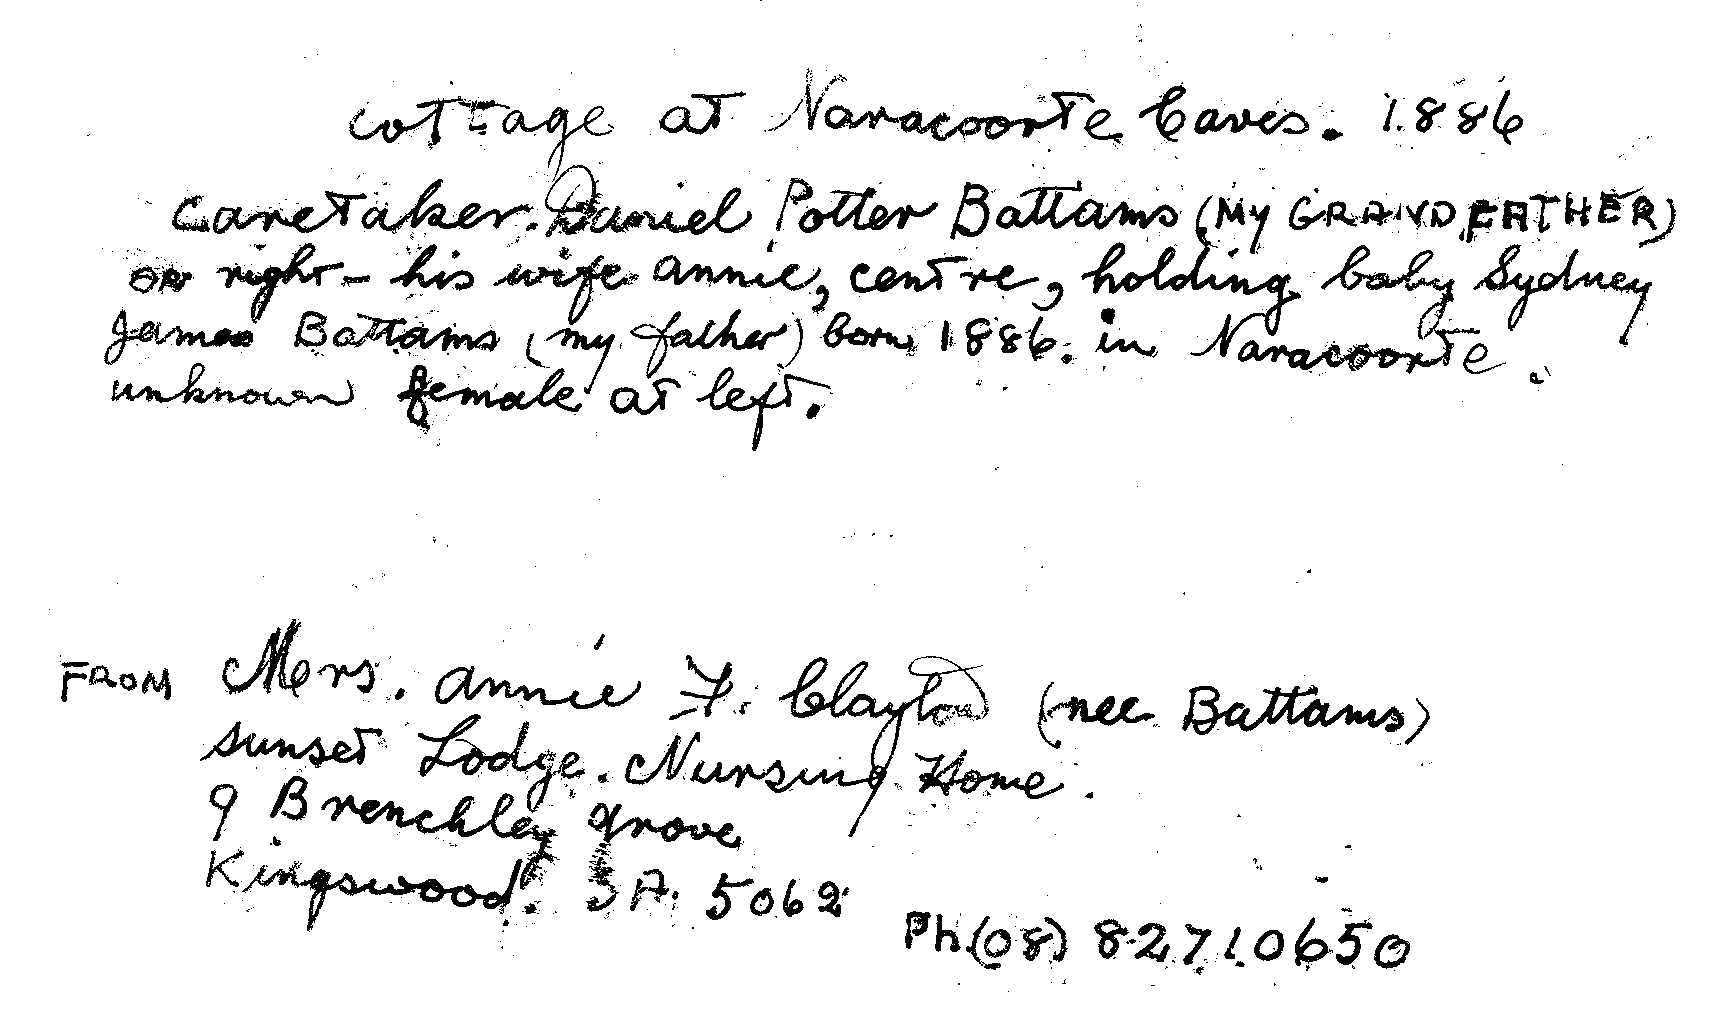 Cottage at Naracoorte Caves. 1886
Caretaker. Daniel Potter Battams (MY GRANDFATHER)
on right - his wife annie, centre, holding baby Sydney
James Battams (my father) born 1886. in Naracoorte.
unknown female at left.
FROM Mrs. Annie F. Clayton (nee Battams)
Sunset Lodge. Nursing Home.
9 Brenchley Grove
Kingswood. SA. 5062
Ph.(08) 82710650